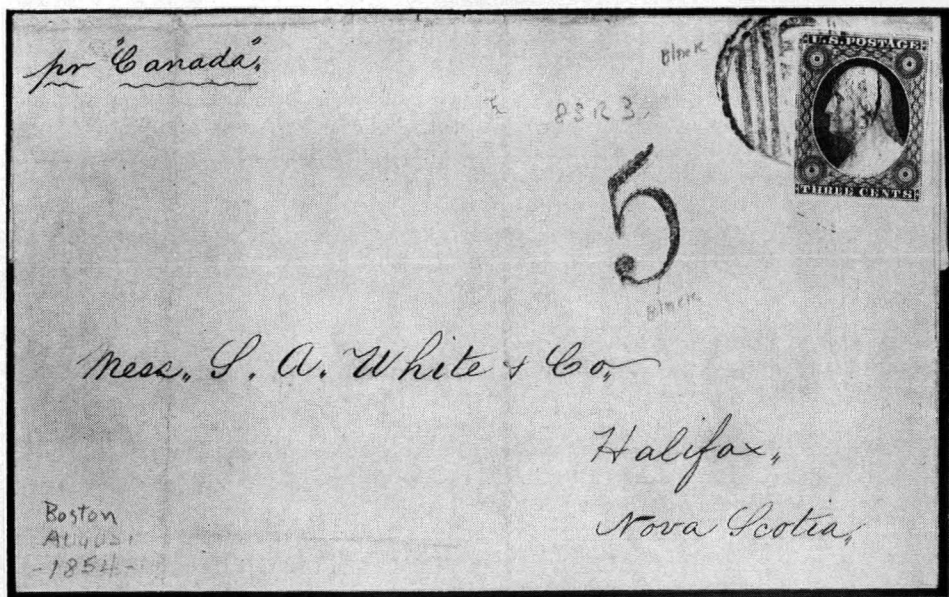 pr "Canada"
Black
83R3
U.S. POSTAGE
THREE CENTS
5
Black
Mess. S. A. White & Co.
Halifax,
Nova Scotia,
Boston
August
-1854-